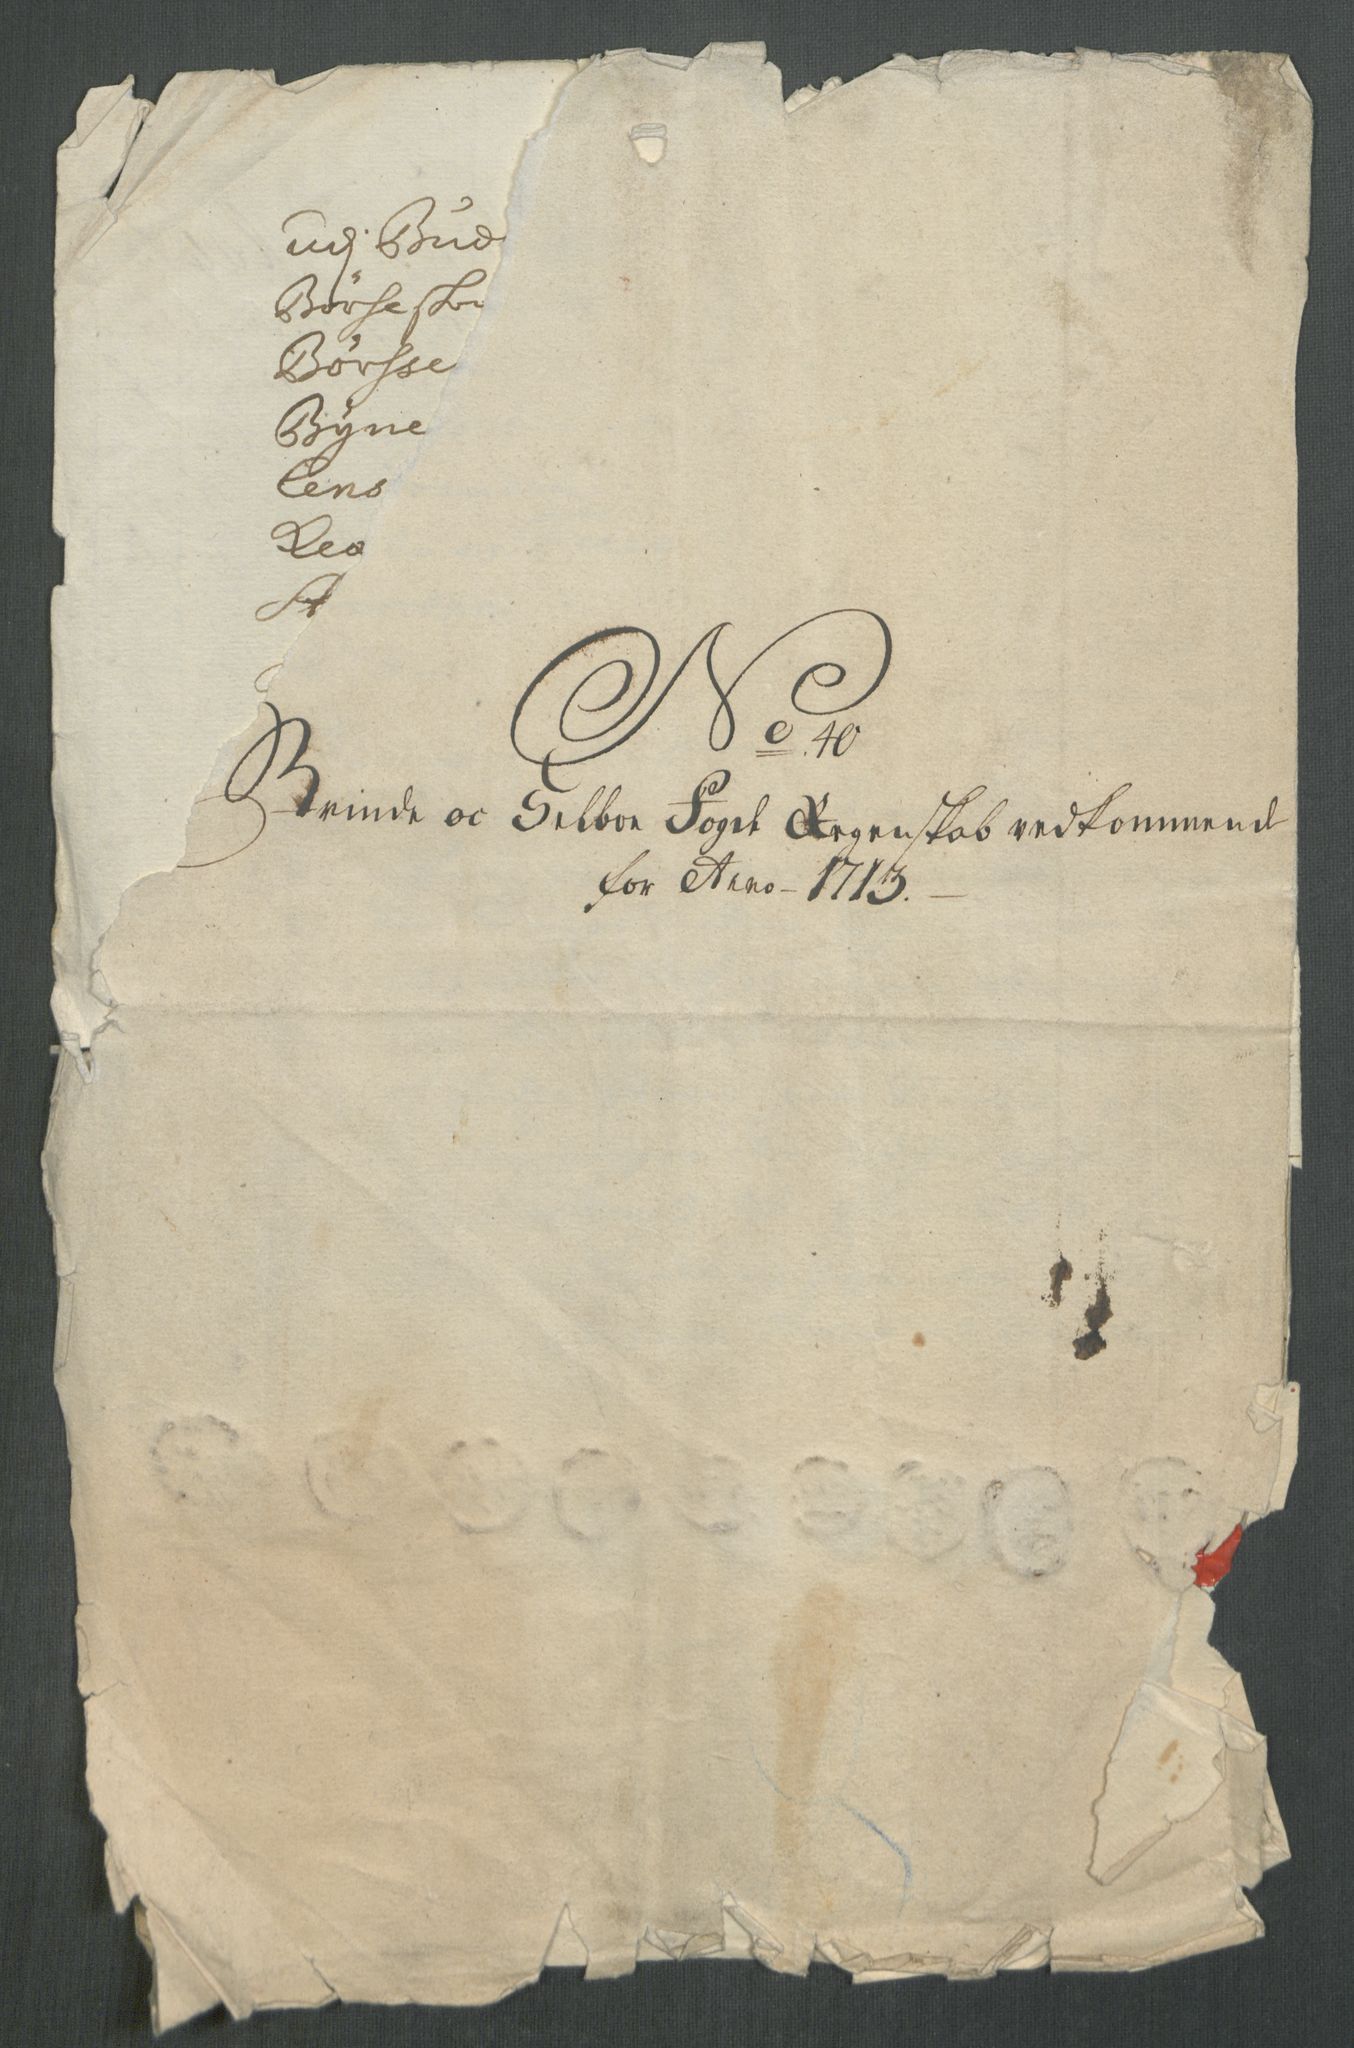 udj Bud
Børse sko
Børsse
Byne
Lens
Leo
A
No. 40
Strinde oc Selboe Fogde Regenskab vedkommende
for Anno 1713.